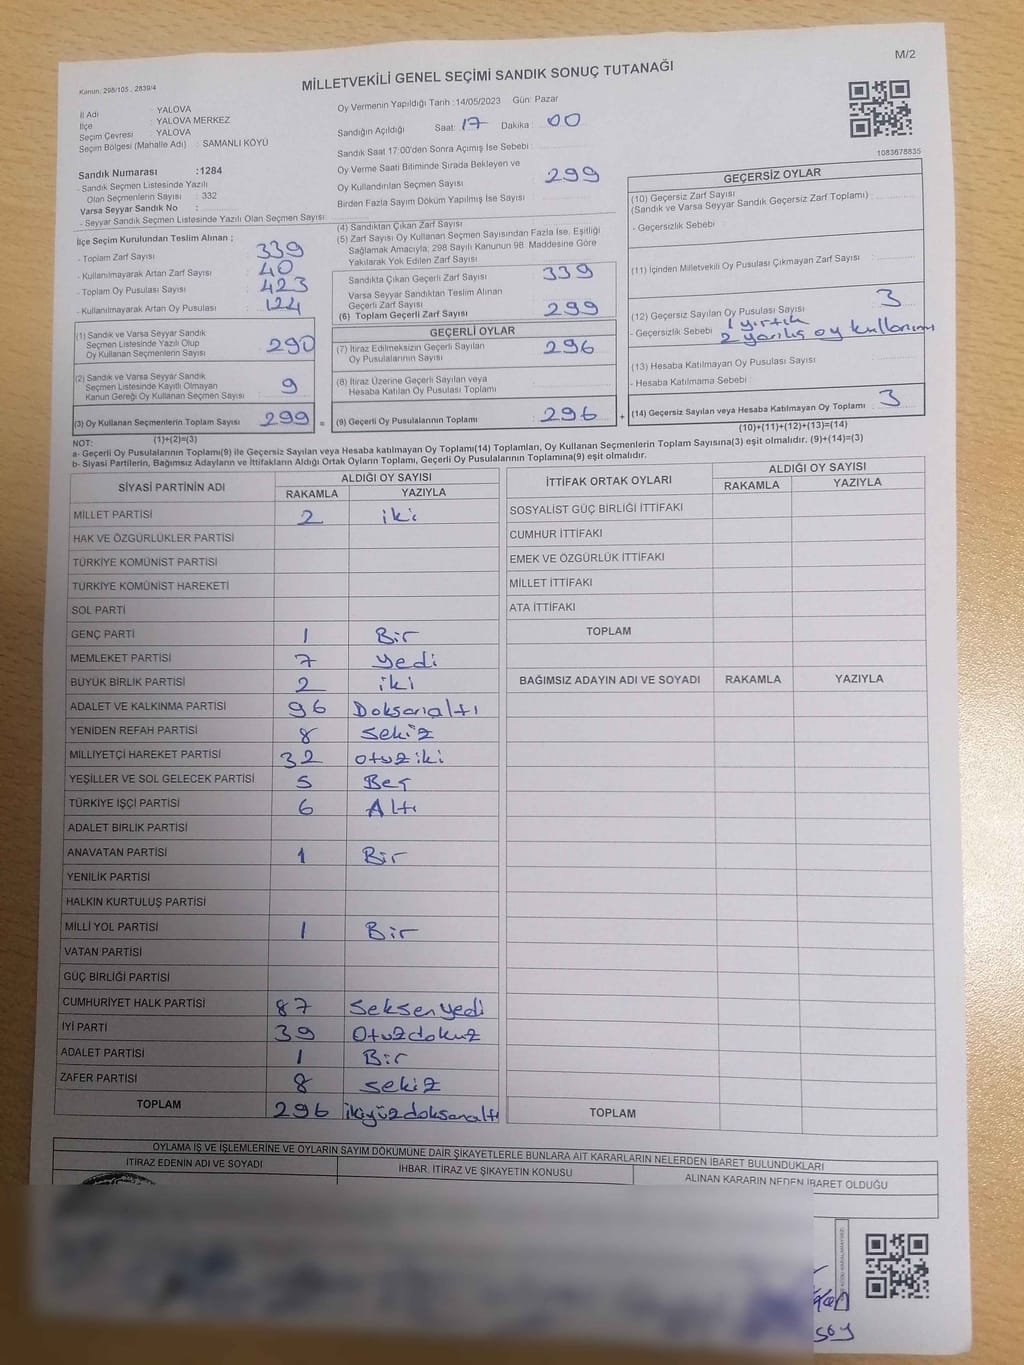 M/2
Kanun: 298/105 , 2839/4
MİLLETVEKİLİ GENEL SEÇİMİ SANDIK SONUÇ TUTANAĞI
İl Adı : YALOVA
İlçe : YALOVA MERKEZ
Seçim Çevresi : YALOVA
Seçim Bölgesi (Mahalle Adı) : SAMANLI KÖYÜ
Oy Vermenin Yapıldığı Tarih :14/05/2023 Gün: Pazar
Sandığın Açıldığı Saat: 17 Dakika : 00
Sandık Saat 17:00'den Sonra Açımış İse Sebebi :
Oy Verme Saati Bitiminde Sırada Bekleyen ve
Oy Kullandırılan Seçmen Sayısı : 299
Birden Fazla Sayım Döküm Yapılmış İse Sayısı :
1083678835
Sandık Numarası :1284
- Sandık Seçmen Listesinde Yazılı
Olan Seçmenlerin Sayısı : 332
Varsa Seyyar Sandık No :
- Seyyar Sandık Seçmen Listesinde Yazılı Olan Seçmen Sayısı :
İlçe Seçim Kurulundan Teslim Alınan ;
- Toplam Zarf Sayısı : 339
- Kullanılmayarak Artan Zarf Sayısı : 40
- Toplam Oy Pusulası Sayısı : 423
- Kullanılmayarak Artan Oy Pusulası : 124
(1) Sandık ve Varsa Seyyar Sandık
Seçmen Listesinde Yazılı Olup
Oy Kullanan Seçmenlerin Sayısı : 290
(2) Sandık ve Varsa Seyyar Sandık
Seçmen Listesinde Kayıtlı Olmayan
Kanun Gereği Oy Kullanan Seçmen Sayısı : 9
(3) Oy Kullanan Seçmenlerin Toplam Sayısı : 299 =
(1)+(2)=(3)
(4) Sandıktan Çıkan Zarf Sayısı :
(5) Zarf Sayısı Oy Kullanan Seçmen Sayısından Fazla İse, Eşitliği
Sağlamak Amacıyla; 298 Sayılı Kanunun 98. Maddesine Göre
Yakılarak Yok Edilen Zarf Sayısı :
Sandıkta Çıkan Geçerli Zarf Sayısı : 339
Varsa Seyyar Sandıktan Teslim Alınan
Geçerli Zarf Sayısı :
(6) Toplam Geçerli Zarf Sayısı : 299
GEÇERLİ OYLAR
(7) İtiraz Edilmeksizin Geçerli Sayılan
Oy Pusulalarının Sayısı : 296
(8) İtiraz Üzerine Geçerli Sayılan veya
Hesaba Katılan Oy Pusulası Toplamı :
(9) Geçerli Oy Pusulalarının Toplamı : 296 +
GEÇERSİZ OYLAR
(10) Geçersiz Zarf Sayısı
(Sandık ve Varsa Seyyar Sandık Geçersiz Zarf Toplamı) :
- Geçersizlik Sebebi :
(11) İçinden Milletvekili Oy Pusulası Çıkmayan Zarf Sayısı :
(12) Geçersiz Sayılan Oy Pusulası Sayısı : 3
- Geçersizlik Sebebi : 1 yırtık
2 yanlış oy kullanımı
(13) Hesaba Katılmayan Oy Pusulası Sayısı :
- Hesaba Katılmama Sebebi :
(14) Geçersiz Sayılan veya Hesaba Katılmayan Oy Toplamı : 3
(10)+(11)+(12)+(13)=(14)
NOT:
a- Geçerli Oy Pusulalarının Toplamı(9) ile Geçersiz Sayılan veya Hesaba katılmayan Oy Toplamı(14) Toplamları, Oy Kullanan Seçmenlerin Toplam Sayısına(3) eşit olmalıdır. (9)+(14)=(3)
b- Siyasi Partilerin, Bağımsız Adayların ve İttifakların Aldığı Ortak Oyların Toplamı, Geçerli Oy Pusulalarının Toplamına(9) eşit olmalıdır.
SİYASİ PARTİNİN ADI ALDIĞI OY SAYISI
RAKAMLA YAZIYLA
MİLLET PARTİSİ 2 iki
HAK VE ÖZGÜRLÜKLER PARTİSİ
TÜRKİYE KOMÜNİST PARTİSİ
TÜRKİYE KOMÜNİST HAREKETİ
SOL PARTİ
GENÇ PARTİ 1 Bir
MEMLEKET PARTİSİ 7 yedi
BÜYÜK BİRLİK PARTİSİ 2 iki
ADALET VE KALKINMA PARTİSİ 96 Doksanaltı
YENİDEN REFAH PARTİSİ 8 sekiz
MİLLİYETÇİ HAREKET PARTİSİ 32 otuziki
YEŞİLLER VE SOL GELECEK PARTİSİ 5 Beş
TÜRKİYE İŞÇİ PARTİSİ 6 Altı
ADALET BİRLİK PARTİSİ
ANAVATAN PARTİSİ 1 Bir
YENİLİK PARTİSİ
HALKIN KURTULUŞ PARTİSİ
MİLLİ YOL PARTİSİ 1 Bir
VATAN PARTİSİ
GÜÇ BİRLİĞİ PARTİSİ
CUMHURİYET HALK PARTİSİ 87 seksenyedi
İYİ PARTİ 39 Otuzdokuz
ADALET PARTİSİ 1 Bir
ZAFER PARTİSİ 8 sekiz
TOPLAM 296 ikiyüzdoksanaltı
İTTİFAK ORTAK OYLARI ALDIĞI OY SAYISI
RAKAMLA YAZIYLA
SOSYALİST GÜÇ BİRLİĞİ İTTİFAKI
CUMHUR İTTİFAKI
EMEK VE ÖZGÜRLÜK İTTİFAKI
MİLLET İTTİFAKI
ATA İTTİFAKI
TOPLAM
BAĞIMSIZ ADAYIN ADI VE SOYADI RAKAMLA YAZIYLA
TOPLAM
OYLAMA İŞ VE İŞLEMLERİNE VE OYLARIN SAYIM DÖKÜMÜNE DAİR ŞİKAYETLERLE BUNLARA AİT KARARLARIN NELERDEN İBARET BULUNDUKLARI
İTİRAZ EDENİN ADI VE SOYADI İHBAR, İTİRAZ VE ŞİKAYETİN KONUSU ALINAN KARARIN NEDEN İBARET OLDUĞU